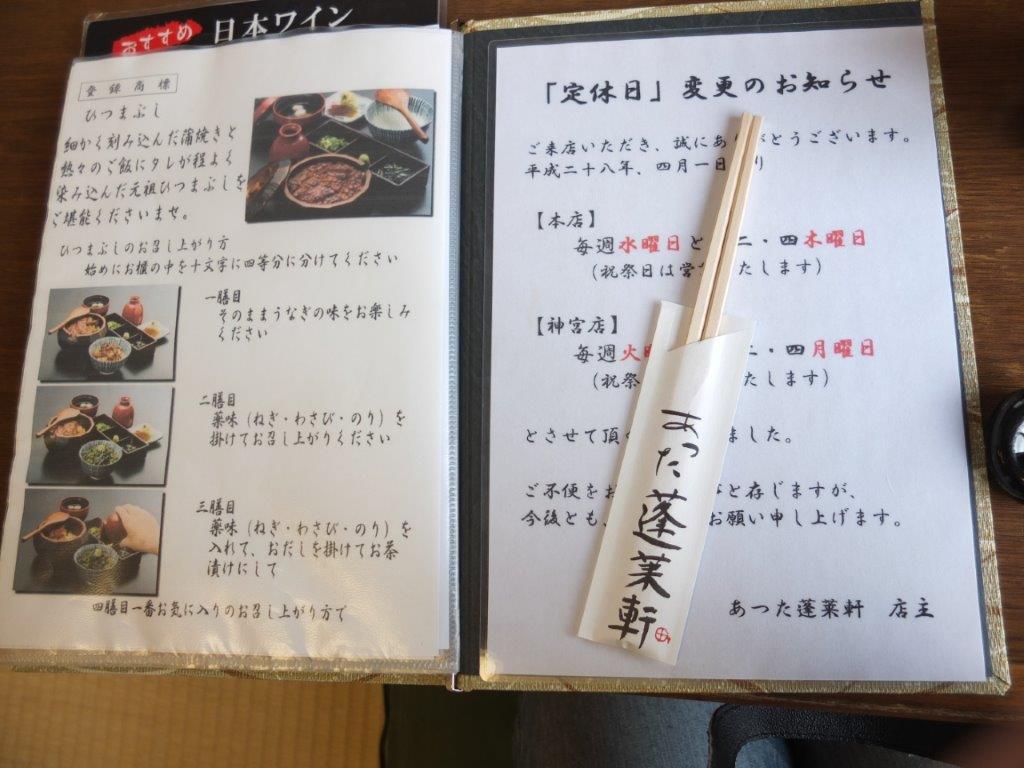 おすすめ 日本ワイン
登録商標
ひつまぶし
細かく刻み込んだ蒲焼きと
熱々のご飯にタレが程よく
染み込んだ元祖ひつまぶしを
ご堪能くださいませ。
ひつまぶしのお召し上がり方
始めにお櫃の中を十文字に四等分に分けてください
一膳目
そのままうなぎの味をお楽しみ
ください
二膳目
薬味（ねぎ・わさび・のり）を
掛けてお召し上がりください
三膳目
薬味（ねぎ・わさび・のり）を
入れて、おだしを掛けてお茶
漬けにして
四膳目一番お気に入りのお召し上がり方で
「定休日」変更のお知らせ
ご来店いただき、誠にあ がとうございます。
平成二十八年、四月一日 り
【本店】
毎週水曜日と 二・四木曜日
（祝祭日は営 たします）
【神宮店】
毎週火 二・四月曜日
（祝祭 たします）
とさせて頂 ました。
ご不便をお と存じますが、
今後とも、 お願い申し上げます。
あつた蓬莱軒 店主
あつた蓬莱軒